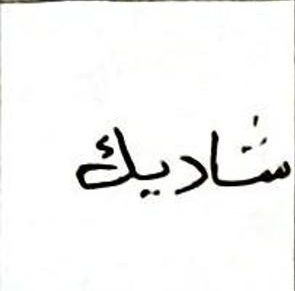 شاديك